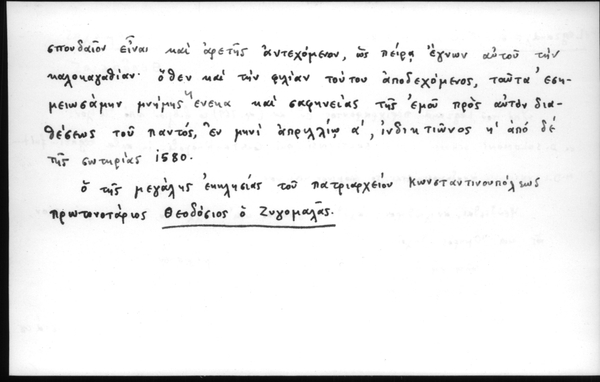 σπουδαῖον εἶναι καὶ ἀρετῆς ἀντεχόμενον, ὡς πείρᾳ ἔγνων αὐτοῦ τὴν
καλοκαγαθίαν· ὅθεν καὶ τὴν φιλίαν τούτου ἀποδεχόμενος, ταῦτα ἐση-
μειωσάμην μνήμης ἕνεκα καὶ σαφηνείας τῆς ἐμοῦ πρὸς αὐτὸν δια-
θέσεως τοῦ παντός, ἐν μηνὶ ἀπριλλίῳ α', ἰνδικτιῶνος η' ἀπὸ δὲ
τῆς σωτηρίας 1580.
ὁ τῆς μεγάλης ἐκκλησίας τοῦ πατριαρχείου Κωνσταντινουπόλεως
πρωτονοτάριος Θεοδόσιος ὁ Ζυγομαλᾶς.